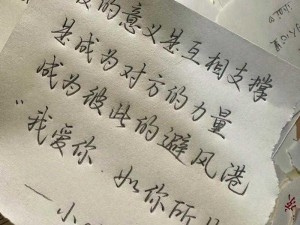 的意义是互相支撑
是成为对方的力量
成为彼此的避风港
"我爱你.如你所
—小